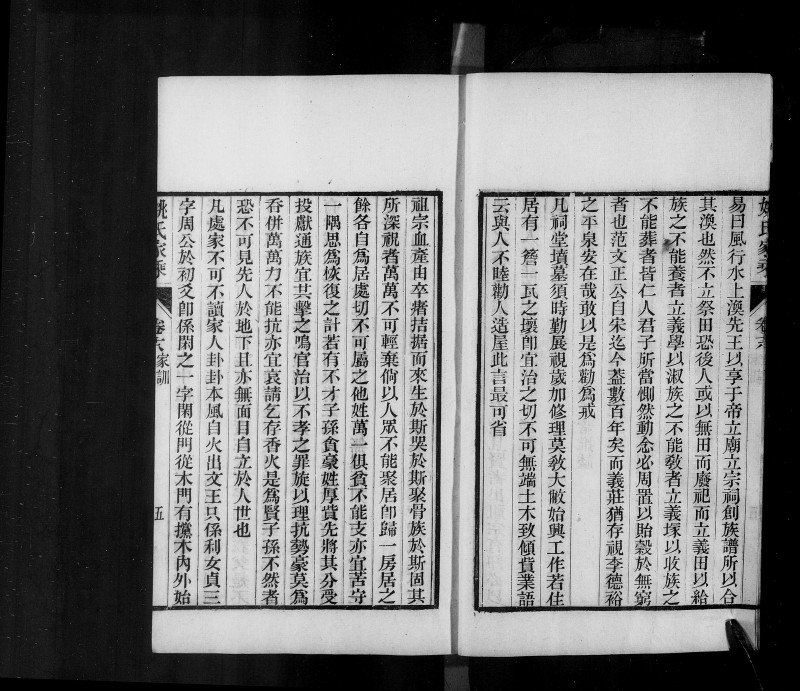 易曰風行水上渙先王以享于帝立廟立宗祠創族譜所以合
其渙也然不立祭田恐後人或以無田而廢祀而立義田以給
族之不能養者立義學以淑族之不能敎者立義塚以收族之
不能葬者皆仁人君子所當惻然動念必周置以貽穀於無窮
者也范文正公自宋迄今葢數百年矣而義莊猶存視李德裕
之平泉安在哉敢以是爲勸爲戒
凡祠堂墳墓須時勤展視歲加修理莫敎大敝始興工作若住
居有一簪一瓦之壞卽宜治之切不可無端土木致傾貲業語
云與人不睦勸人造屋此言最可省
祖宗血產由卒瘏拮据而來生於斯哭於斯聚骨族於斯固其
所深視者萬萬不可輕棄倘以人眾不能聚居卽歸一房居之
餘各自爲居處切不可屬之他姓萬一俱貧不能支亦宜苦守
一隅思爲恢復之計若有不才子孫貪豪姓厚貲先將其分受
投獻通族宜共擊之鳴官治以不孝之罪旋以理抗勢豪莫爲
吞併萬萬力不能抗亦宜哀請乞存香火是爲賢子孫不然者
恐不可見先人於地下且亦無面目自立於人世也
凡處家不可不讀家人卦卦本風自火出文王只係利女貞三
字周公於初爻卽係閑之一字閑從門從木門有攩木內外始
姚氏家乘
卷六家訓
五